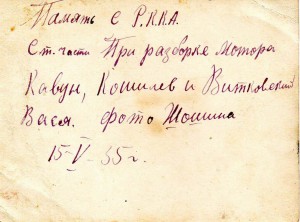 Память с Р.К.К.А.
Ст. части При разборке мотора
Кавун, Кошилев и Витковский
Вася. фото Шошина
15-V-35 г.